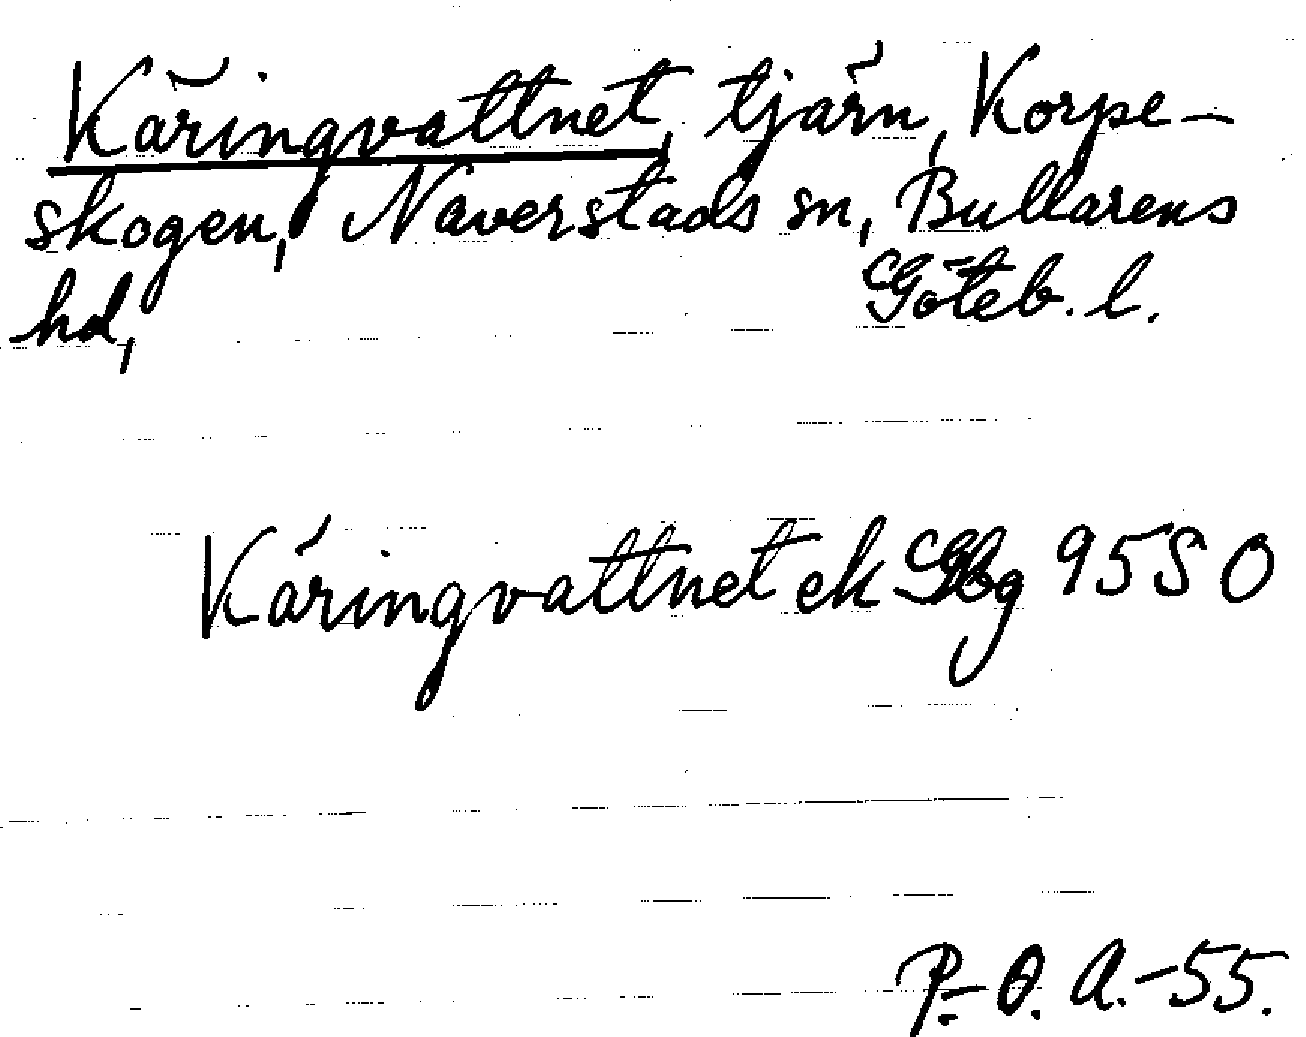 Käringvattnet, tjärn, Korpe-
skogen, Naverstads sn, Bullarens
hd, Göteb. l.
Käringvattnet ek Gbg 95 S O
P.-O. A.-55.